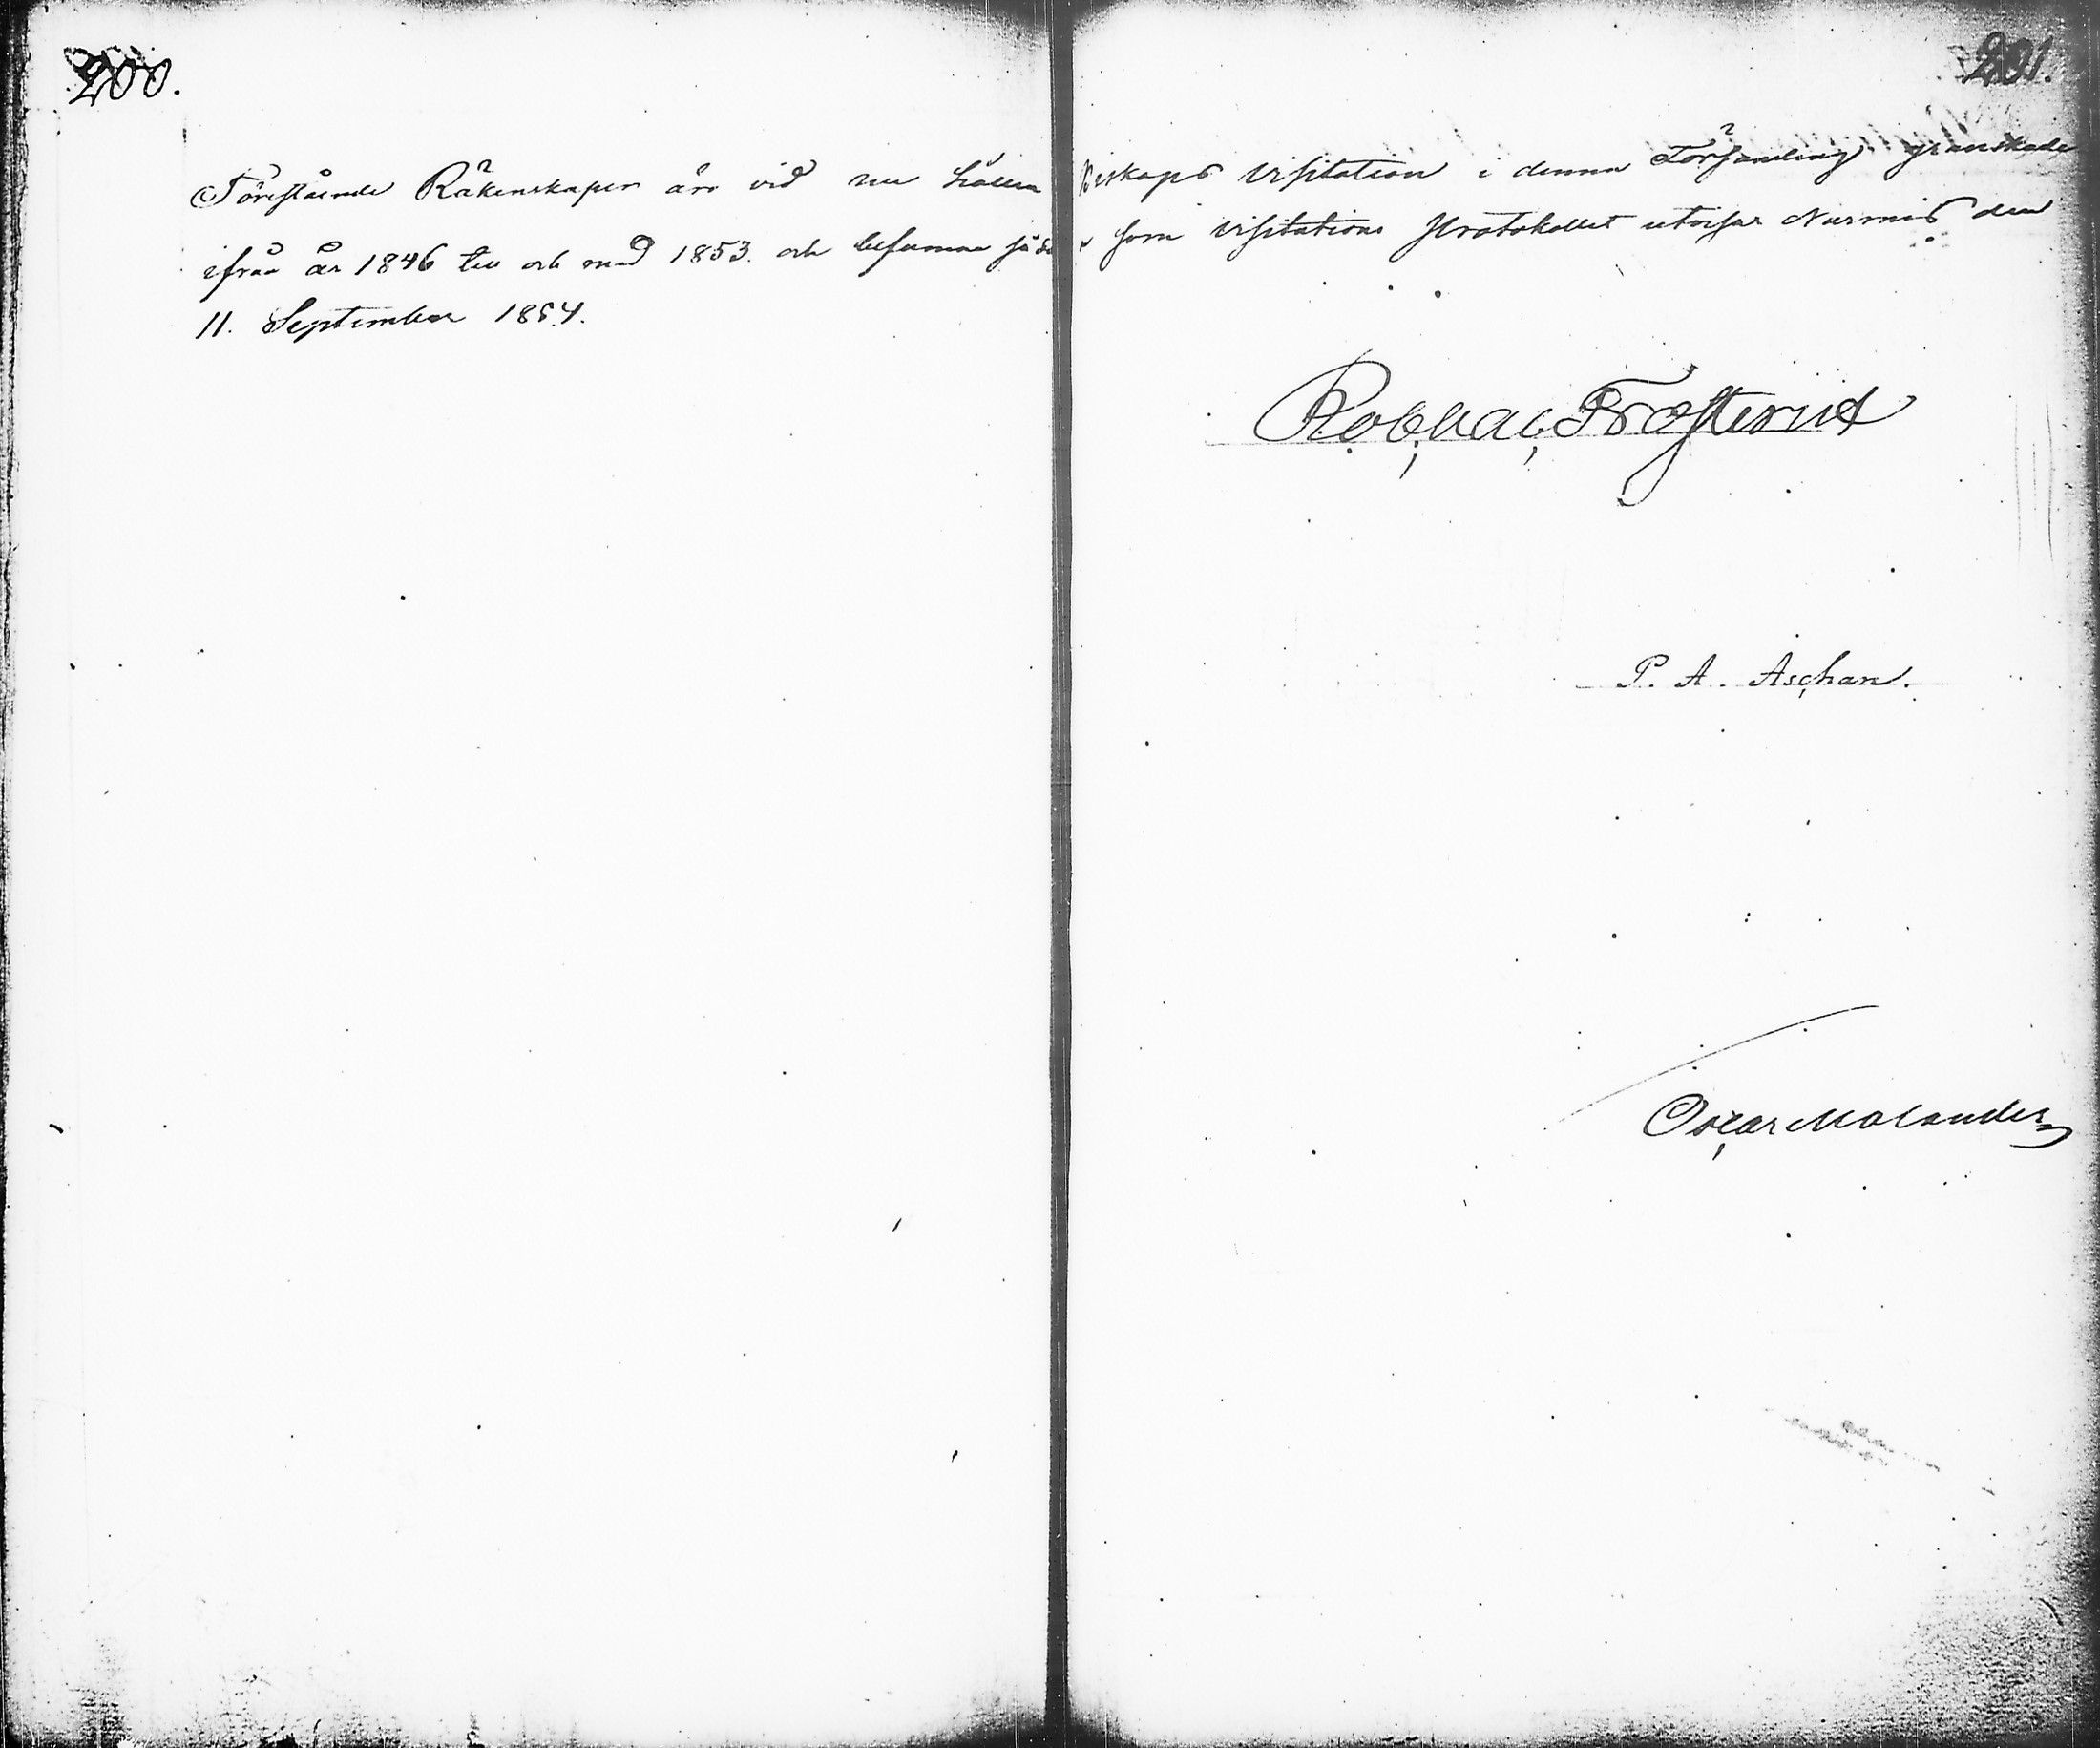 200.
201.
Förestående Räkenskaper äro vid nu hållen Biskops Visitation i denna Församling granskade
ifrån år 1846 till och med 1853. och befunna sådane som Visitations Protokollet utvisar Nurmis den
11. September 1854.
Rob. Val. Frosterus
P. A. Aschan.
Oscar Molander